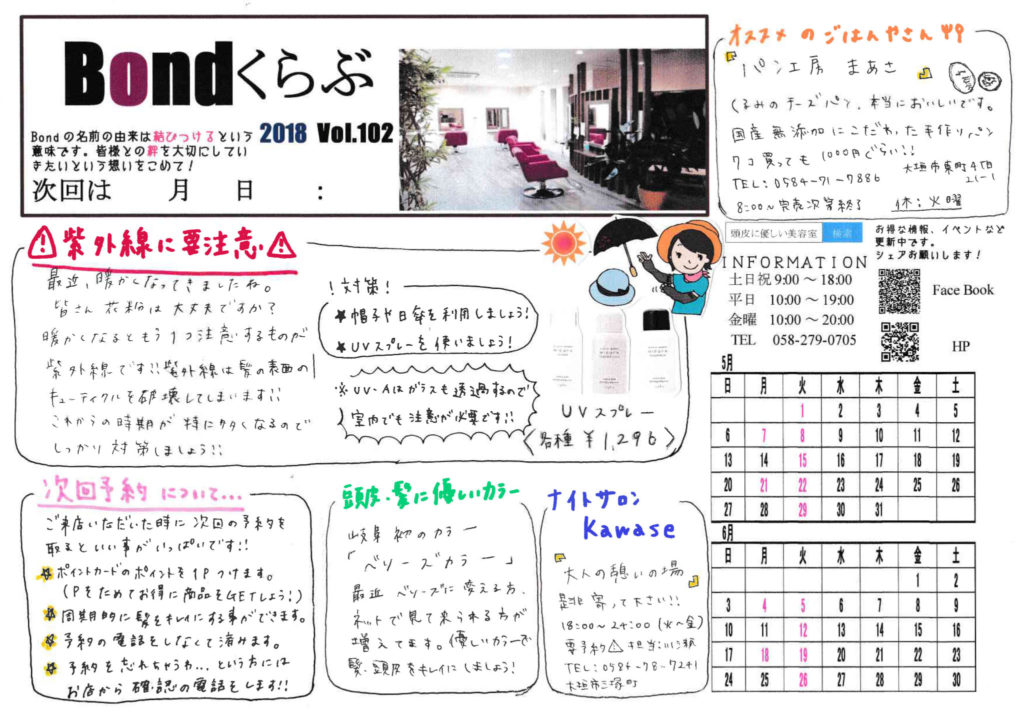 Bondくらぶ
2018 Vol.102
Bondの名前の由来は結びつけるという
意味です。皆様との絆を大切にしてい
きたいという想いをこめて！
次回は　月　日　：
オススメ の ごはんやさん
パン工房 まあさ
くるみのチーズパン、本当においしいです。
国産無添加にこだわった手作りパン
7コ買っても 1000円ぐらい!!
大垣市東町4丁目
TEL：0584-71-7886
8:00～完売次第終了
休：火曜
⚠紫外線に要注意⚠
最近、暖かくなってきましたね。
皆さん 花粉は大丈夫ですか？
暖かくなるともう1つ注意するものが
紫外線です!!紫外線は髪の表面の
キューティクルを破壊してしまいます!!
これからの時期が特に多くなるので
しっかり対策しましょう!!
！対策！
★帽子や日傘を利用しましょう！
★UVスプレーを使いましょう！
※UV-Aはガラスも透過するので
室内でも注意が必要です!!
UVスプレー
〈各種 ¥1,296〉
頭皮に優しい美容室 検索
INFORMATION
土日祝 9:00 ～ 18:00
平日 10:00 ～ 19:00
金曜 10:00 ～ 20:00
TEL 058-279-0705
お得な情報、イベントなど
更新中です。
シェアお願いします！
Face Book
HP
5月
日 月 火 水 木 金 土
1 2 3 4 5
6 7 8 9 10 11 12
13 14 15 16 17 18 19
20 21 22 23 24 25 26
27 28 29 30 31
6月
日 月 火 水 木 金 土
1 2
3 4 5 6 7 8 9
10 11 12 13 14 15 16
17 18 19 20 21 22 23
24 25 26 27 28 29 30
次回予約 について…
ご来店いただいた時に次回の予約を
取るといい事がいっぱいです!!
ポイントカードのポイントを1Pつけます。
(Pをためてお得に商品をGETしよう！)
周期的に髪をキレイにする事ができます。
予約の電話をしなくて済みます。
予約を忘れちゃうわ…という方には
お店から確認の電話をします!!
頭皮・髪に優しいカラー
岐阜初のカラー
「ベリーズカラー」
最近 ベリーズに変える方、
ネットで見て来られる方が
増えてます。優しいカラーで
髪・頭皮をキレイにしましょう！
ナイトサロン
Kawase
大人の憩いの場
是非寄って下さい!!
18:00～24:00 (火～金)
要予約⚠ 担当：川瀬
TEL：0584-78-7241
大垣市三塚町